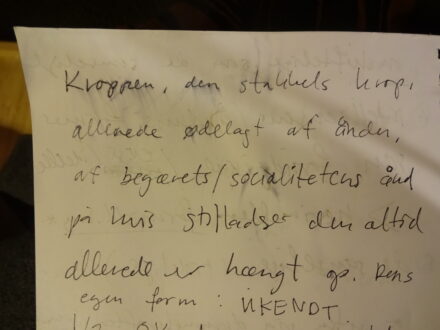 Kroppen, den stakkels krop,
allerede ødelagt af ånden,
af begærets/socialitetens ånd
på hvis stilladser den altid
allerede er hængt op. Dens
egen form : UKENDT